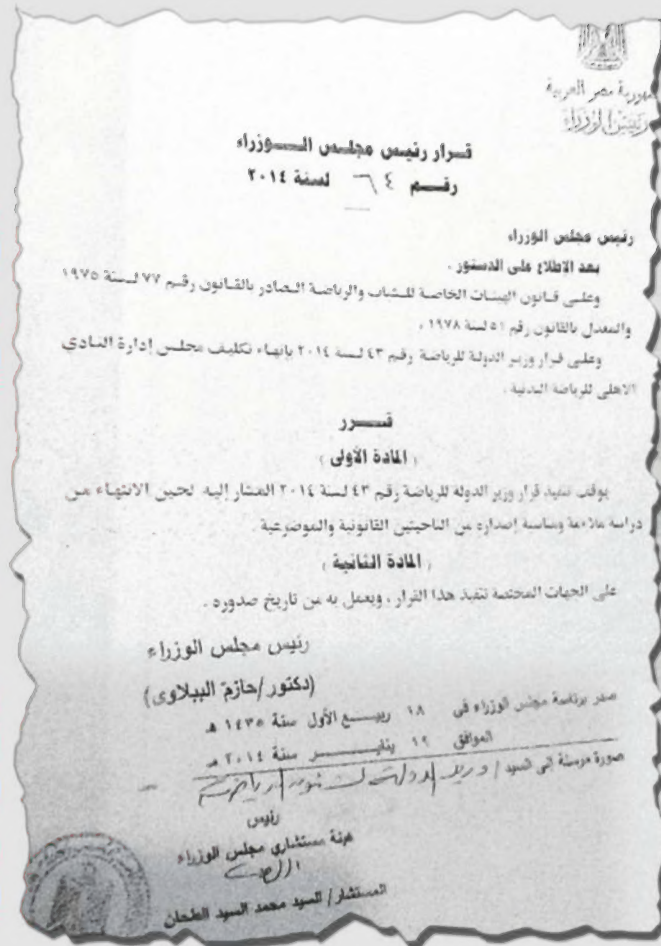 جمهورية مصر العربية
رئيس الوزراء
قـرار رئيس مجلـس الـــوزراء
رقـــم ٦٤ لسنة ٢٠١٤
رئيس مجلس الوزراء
بعد الاطلاع على الدستور .
وعلـى قـانون الهيئـات الخاصة للـشباب والرياضة الـصادر بالقـانون رقـم ٧٧ لـسنة ١٩٧٥
والمعدل بالقانون رقم ٥١ لسنة ١٩٧٨ ،
وعلـى قـرار وزيـر الدولـة للرياضة رقـم ٤٣ لـسنة ٢٠١٤ بإنهـاء تكليـف مجلـس إدارة النـادي
الاهلى للرياضة البدنية .
قــــرر
( المادة الأولى )
يوقف تنفيذ قرار وزير الدولة للرياضة رقم ٤٣ لسنة ٢٠١٤ المشار إليه لحين الانتهاء من
دراسة ملاءمة ومناسبة إصداره من الناحيتين القانونية والموضوعية
( المادة الثانية )
على الجهات المختصة تنفيذ هذا القرار ، ويعمل به من تاريخ صدوره .
رئيس مجلس الوزراء
(دكتور/حازم الببلاوى)
صدر برئاسة مجلس الوزراء فى ١٨ ربيـــع الأول سنة ١٤٣٥ هـ
الموافق ١٩ ينايـــــر سنة ٢٠١٤ مـ
صورة مرسلة إلى السيد / وزير الدولة لشئون الرياضة
رئيس
هيئة مستشاري مجلس الوزراء
المستشار/ السيد محمد السيد الطحان